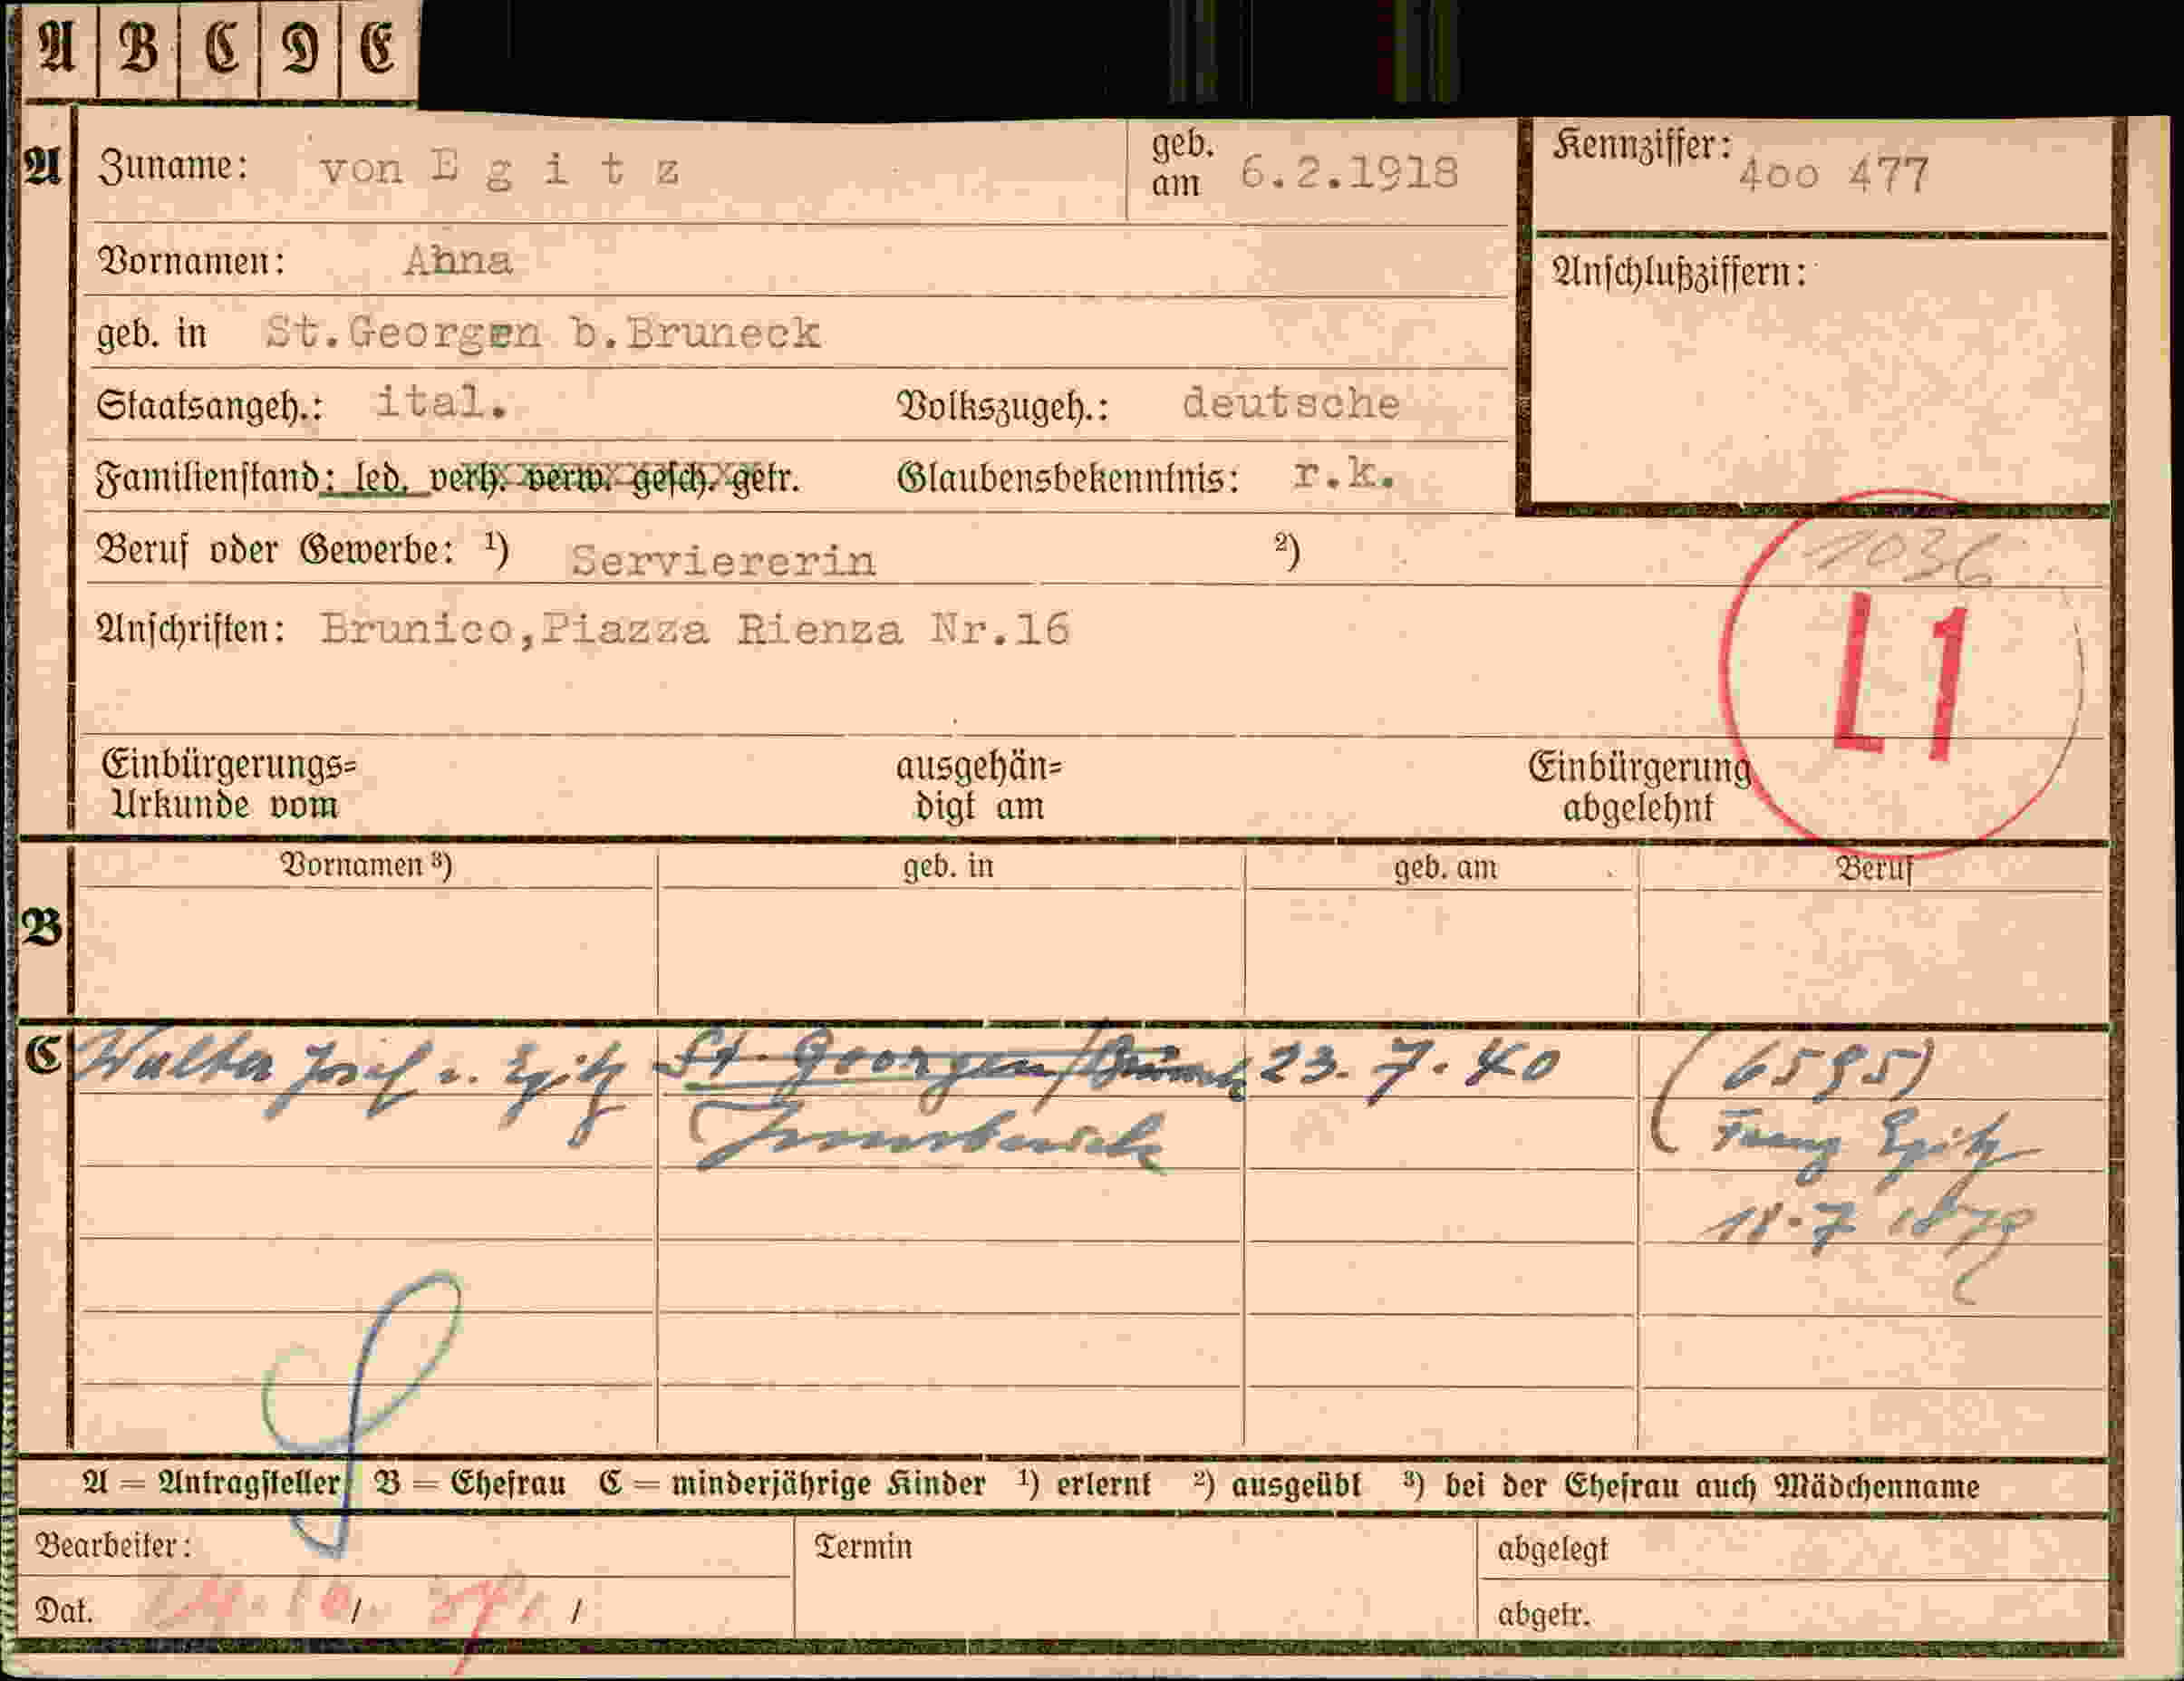 A B C D E
A Zuname: von E g i t z geb. am 6.2.1918 Kennziffer: 4oo 477
Vornamen: Anna Anschlußziffern:
geb. in St.Georgen b.Bruneck
Staatsangeh.: ital. Volkszugeh.: deutsche
Familienstand: led. verh. verw. gesch. getr. Glaubensbekenntnis: r.k.
Beruf oder Gewerbe: ¹) Serviererin ²)
1036
Anschriften: Brunico,Piazza Rienza Nr.16
L1
Einbürgerungs= ausgehän= Einbürgerung
Urkunde vom digt am abgelehnt
Vornamen ³) geb. in geb. am Beruf
B
C Walter Josef v. Egitz St. Georgen/Bruneck 23. 7. 40 (6595)
Innsbruck Franz Egitz
18.7 1879
A = Antragsteller B = Ehefrau C = minderjährige Kinder ¹) erlernt ²) ausgeübt ³) bei der Ehefrau auch Mädchenname
Bearbeiter: Termin abgelegt
Dat. / / abgetr.